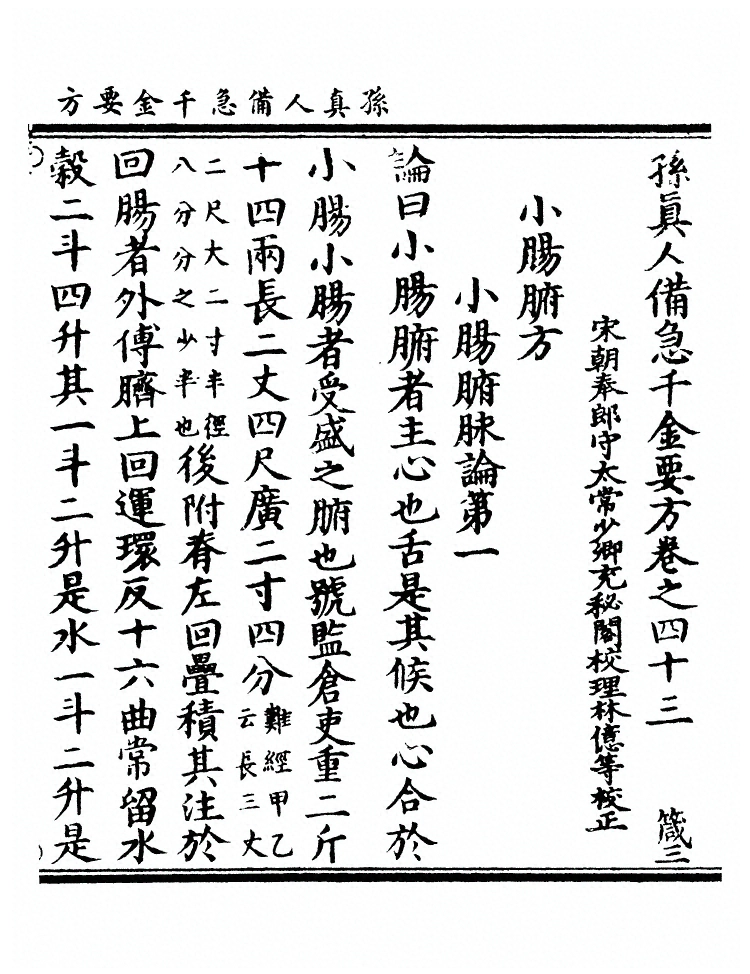 孫真人備急千金要方
孫眞人備急千金要方卷之四十三　箴三
宋朝奉郎守太常少卿充秘閣校理林億等校正
小腸腑方
小腸腑脉論第一
論曰小腸腑者主心也舌是其候也心合於
小腸小腸者受盛之腑也號監倉吏重二斤
十四兩長二丈四尺廣二寸四分難經甲乙云長三丈
二尺大二寸半徑八分分之少半也後附脊左回疊積其注於
回腸者外傅臍上回運環反十六曲常留水
穀二斗四升其一斗二升是水一斗二升是